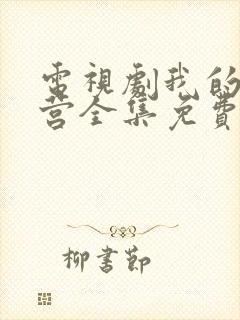 電視劇我的
营全集免費
柳書節